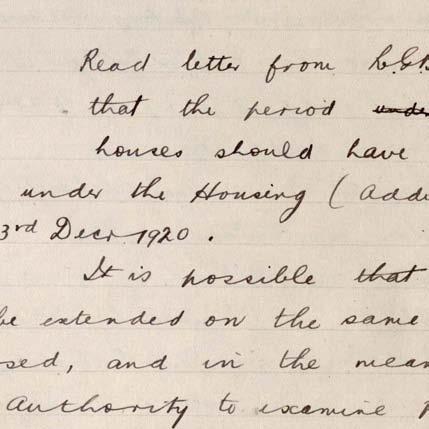 Read letter from L.G.B
that the period under
houses should have
under the Housing (Addi
3rd Decr 1920.
It is possible that
be extended on the same
sed, and in the mean
Authority to examine